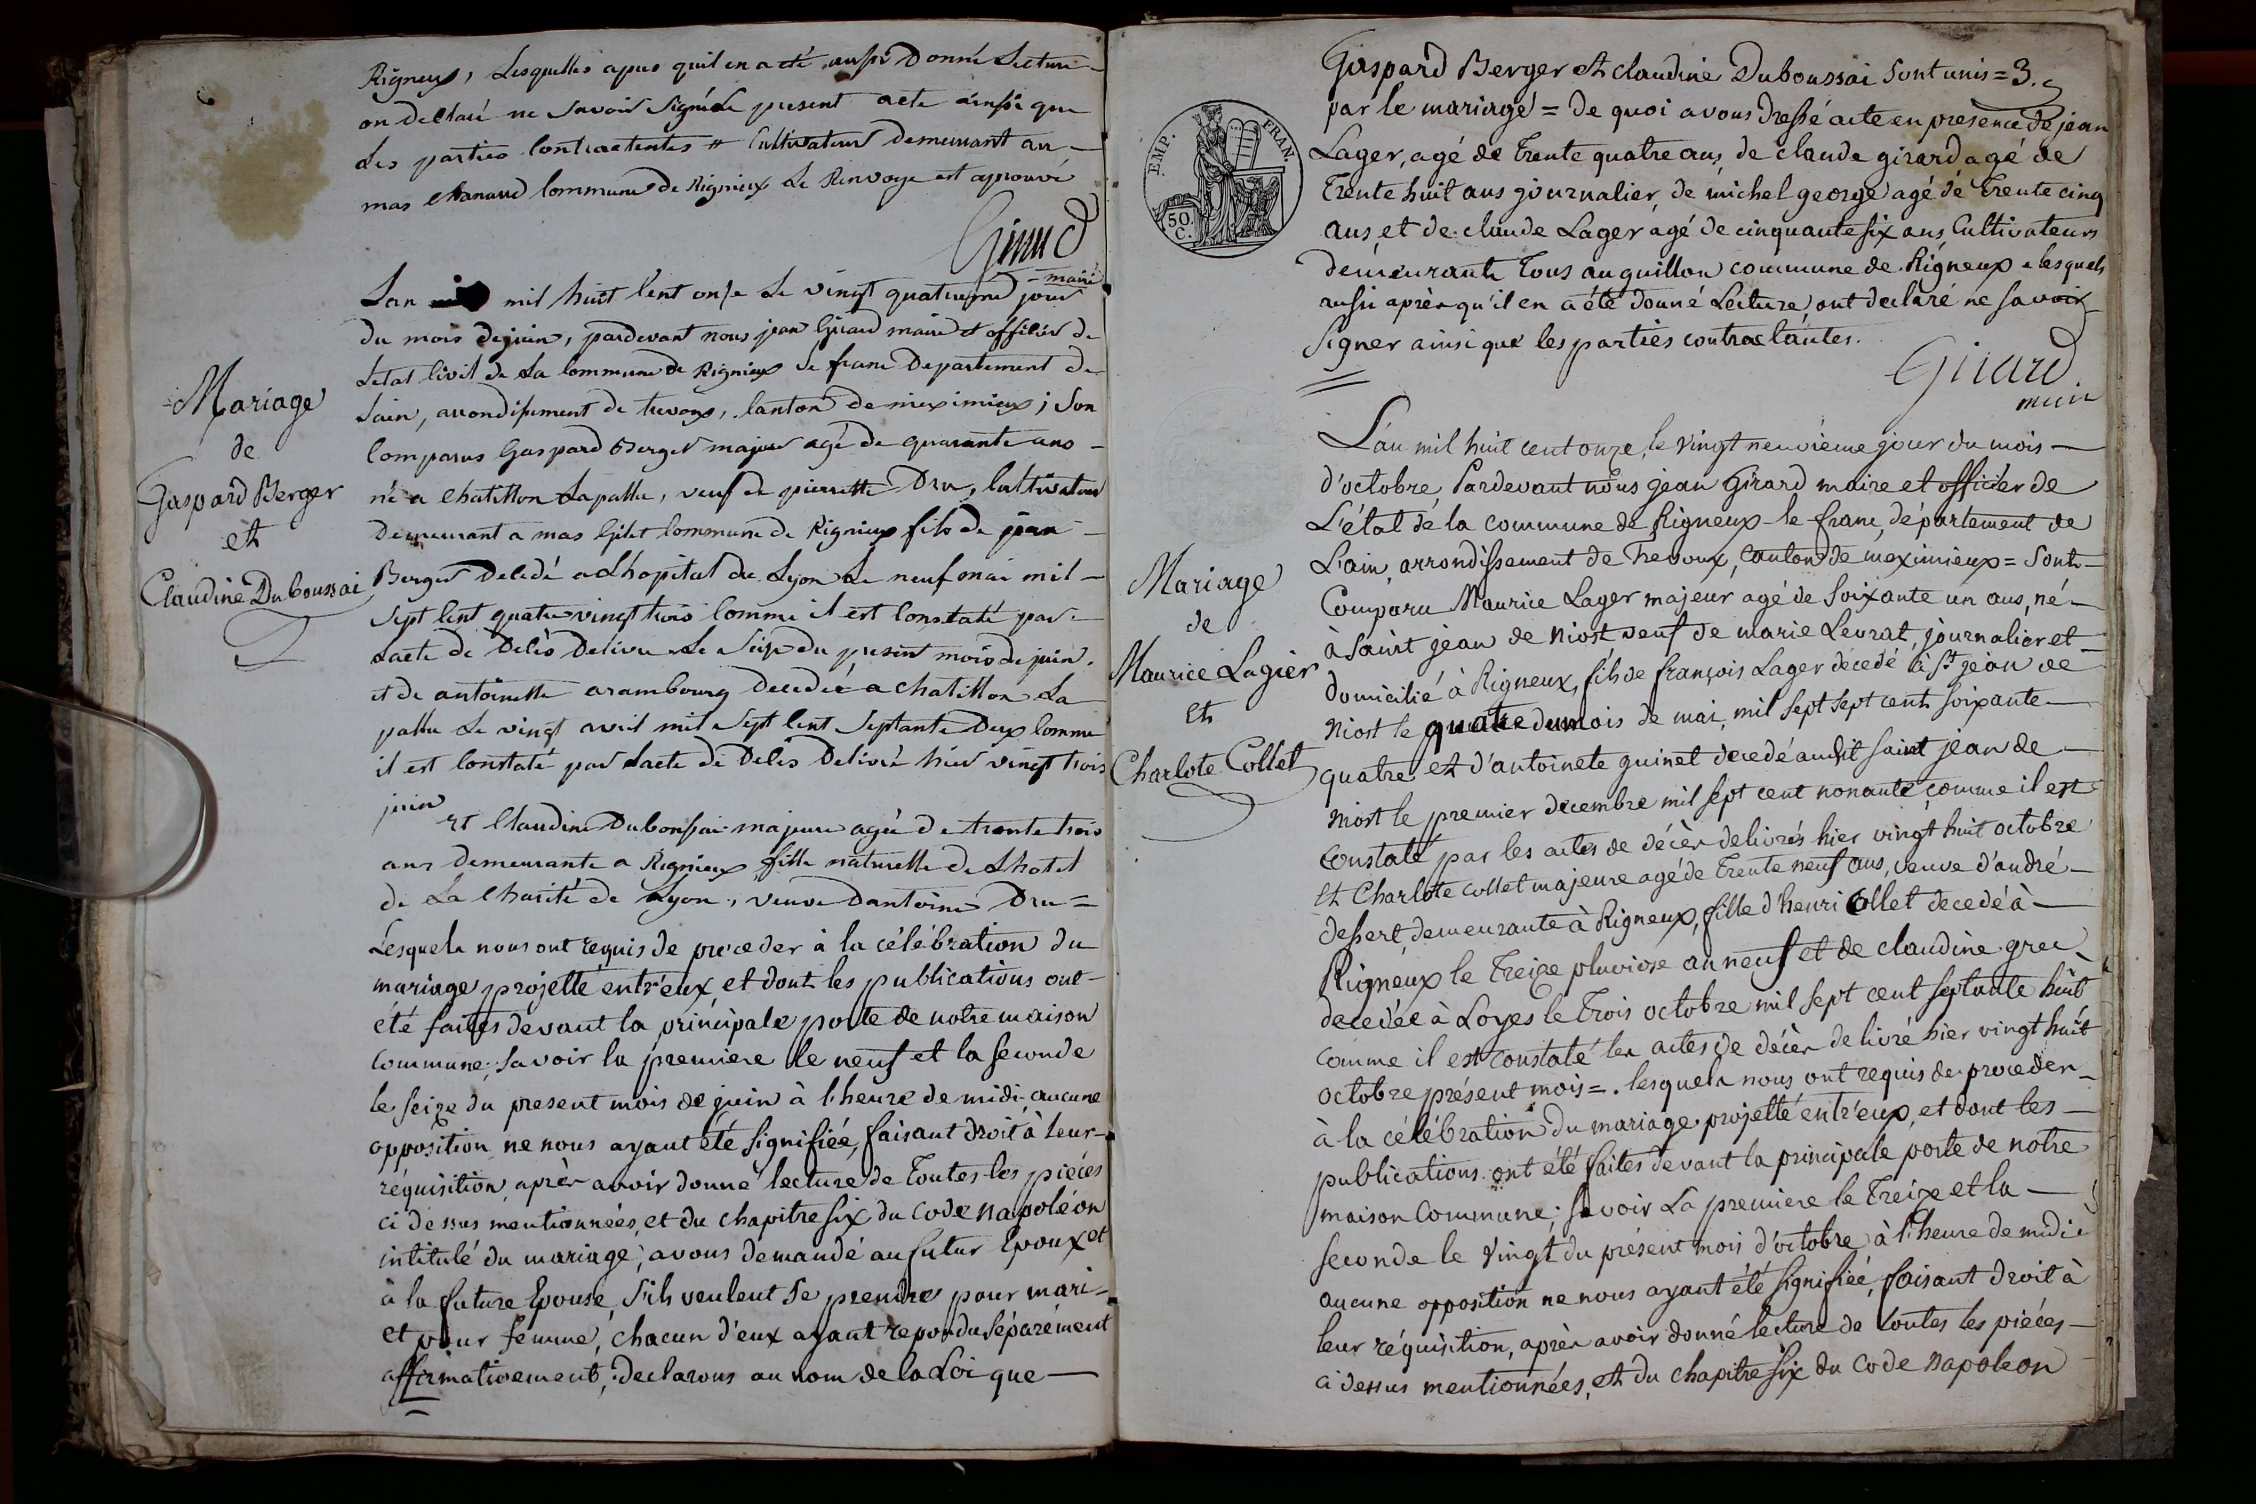 Rigneux, Lesquelles apres quil en a eté aussi Donné Lecture
on declaré ne Savoir Signé Le present acte ainsi que
Les parties Contractentes # Cultivateur demeurant au
mas Chanaud Commune de Rignieux Le Renvoye est aprouvé
Girard
maire
Lan mil huit Cent onse Le vingt quatrieme jour
du mois de juin, pardevant nous jean Girard maire et officier de
Letat Civil de La Commune de Rignieux Le franc Departement de
Lain, arrondisement de trevoux, Canton de meximieux; Son
Comparus Gaspard Berger majeur agé de quarante ans
né a Chatillon Lapallu, veuf de pierrette Dru, Cultivateur
Demeurant a mas Gilet Commune de Rignieux fils de jean
Berger Decedé a Lhopital de Lyon Le neuf mai mil
Sept Cent quatre vingt trois Comme il est Constaté par
Lacte de Delés Delivre Le Seize du present mois de juin.
et de antoinette arambourg Decedée a Chatillon La
pallu Le vingt avril mil Sept Cent Septante Deux Comme
il est Constaté par Lacte de Delés Delivré hier vingt trois
juin
et Claudine Duboussai majeure agée de trente trois
ans demeurante a Rignieux fille naturelle de Lhotel
de La Charité de Lyon, veuve Dantoine Dru =
Lesquels nous ont requis de proceder à la célébration du
mariage projetté entr'eux et dont les publications ont
été faites devant la principale porte de notre maison
commune; savoir la premiere le neuf et la seconde
le seize du present mois de juin à l'heure de midi aucune
opposition ne nous ayant été signifiée, faisant droit à leur
réquisition, après avoir donné lecture de Toutes les pièces
ci dessus mentionnées, et du chapitre six du code Napoléon
intitulé du mariage, avons demandé au futur Epoux et
à la future Epouse, s'ils veulent se prendre pour mari
et pour femme, chacun d'eux ayant repondu séparément
affirmativement, declarons au nom de la Loi que
Mariage
de
Gaspard Berger
et
Claudine Duboussai
Gaspard Berger et claudine Duboussai sont unis = 3.
par le mariage = de quoi avons dressé acte en présence de jean
Lager, agé de trente quatre ans, de claude girard agé de
trente huit ans journalier, de michel george agé de trente cinq
ans, et de claude Lager agé de cinquante six ans, Cultivateurs
demeurants tous au guillon commune de Rigneux lesquels
aussi après qu'il en a été donné Lecture, ont declaré ne savoir
signer ainsi que les parties contractantes.
Girard
maire
EMP. FRAN.
50 C.
L'an mil huit cent onze, le vingt neuvieme jour du mois
d'octobre, Pardevant nous jean Girard maire et officier de
L'état de la commune de Rigneux-le-franc, département de
L'ain, arrondissement de Trevoux, canton de meximieux = Sont
Comparu Maurice Lager majeur agé de soixante un ans, né
à saint jean de niost veuf de marie Levrat, journalier et
domicilié à Rigneux, fils de françois Lager décédé à St jean de
Niost le quatre du mois de mai mil sept sept cent soixante
quatre, et d'antoinete guinet decedé audit saint jean de
niost le premier decembre mil sept cent nonante, comme il est
constaté par les actes de décès delivrés hier vingt huit octobre
Et Charlote collet majeure agé de Trente neuf ans, veuve d'andré
dessert, demeurante à Rigneux, fille d'henri Collet decedé à
Rigneux le Treize pluviose an neuf et de claudine grec
decedée à Loyes le Trois octobre mil sept cent septante huit
comme il est constaté les actes de décès delivré hier vingt huit
octobre présent mois = . lesquels nous ont requis de proceder
à la célébration du mariage projetté entr'eux, et dont les
publications ont été faites devant la principale porte de notre
maison commune; savoir La premiere le Treize et la
seconde le vingt du présent mois d'octobre à l'heure de midi
aucune opposition ne nous ayant été signifiée, faisant droit à
leur réquisition, après avoir donné lecture de toutes les pièces
ci dessus mentionnées, et du chapitre six du code Napoléon
Mariage
de
Maurice Lagier
et
Charlote Collet